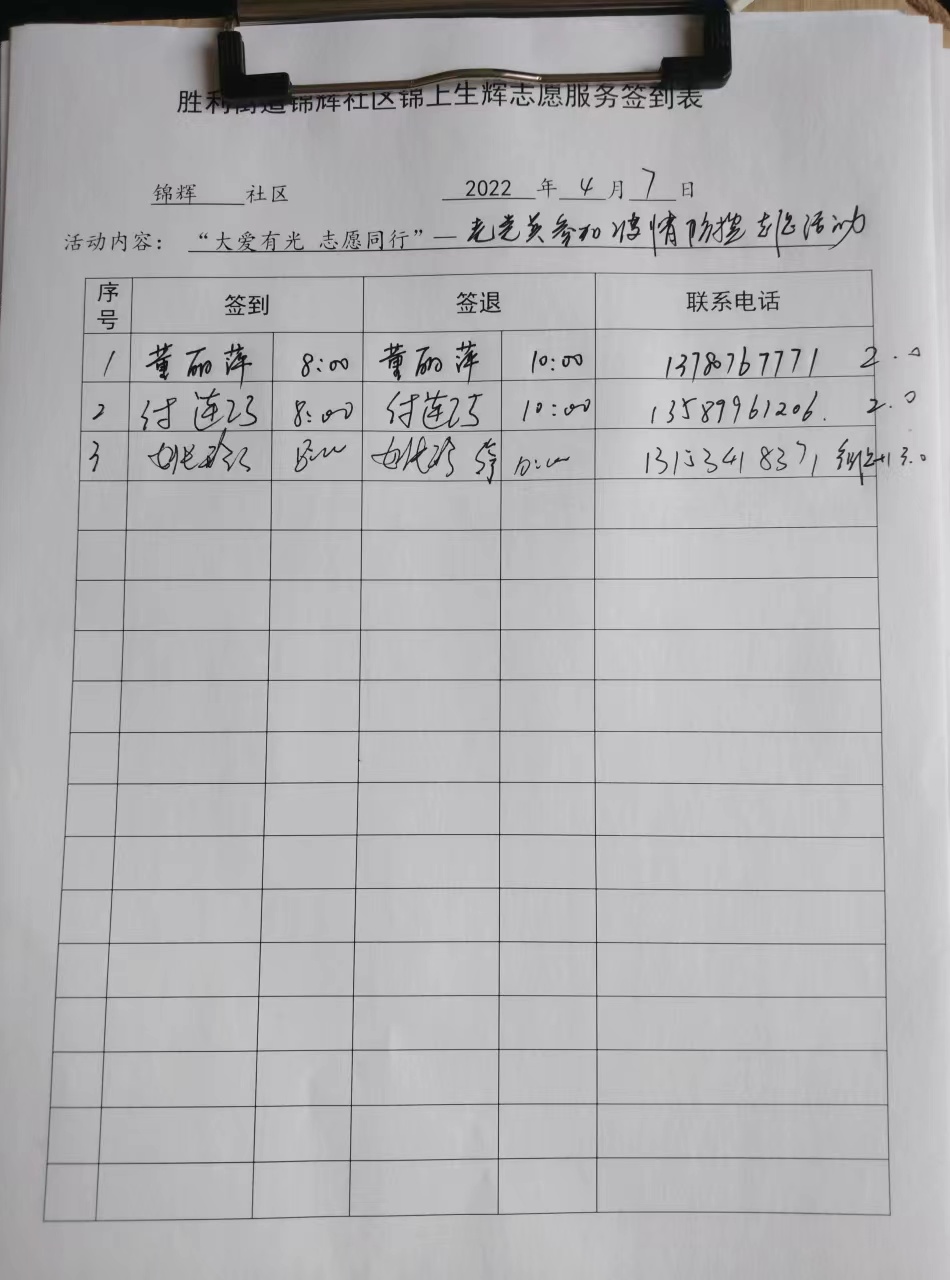 胜利街道锦辉社区锦上生辉志愿服务签到表
锦辉 社区 2022 年 4 月 7 日
活动内容： “大爱有光 志愿同行”— 老党员参加疫情防控志愿活动
序号 签到 签退 联系电话
1 董丽萍 8:00 董丽萍 10:00 13780767771 2.0
2 付连巧 8:00 付连巧 10:00 13589961206. 2.0
3 8:00 10:00 13153418371 3.0